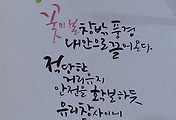 꽃이 볼 창밖 풍경
내 안으로 끌어온다.
정당한
거리유지
안전을 확보하듯
유리창 사이에